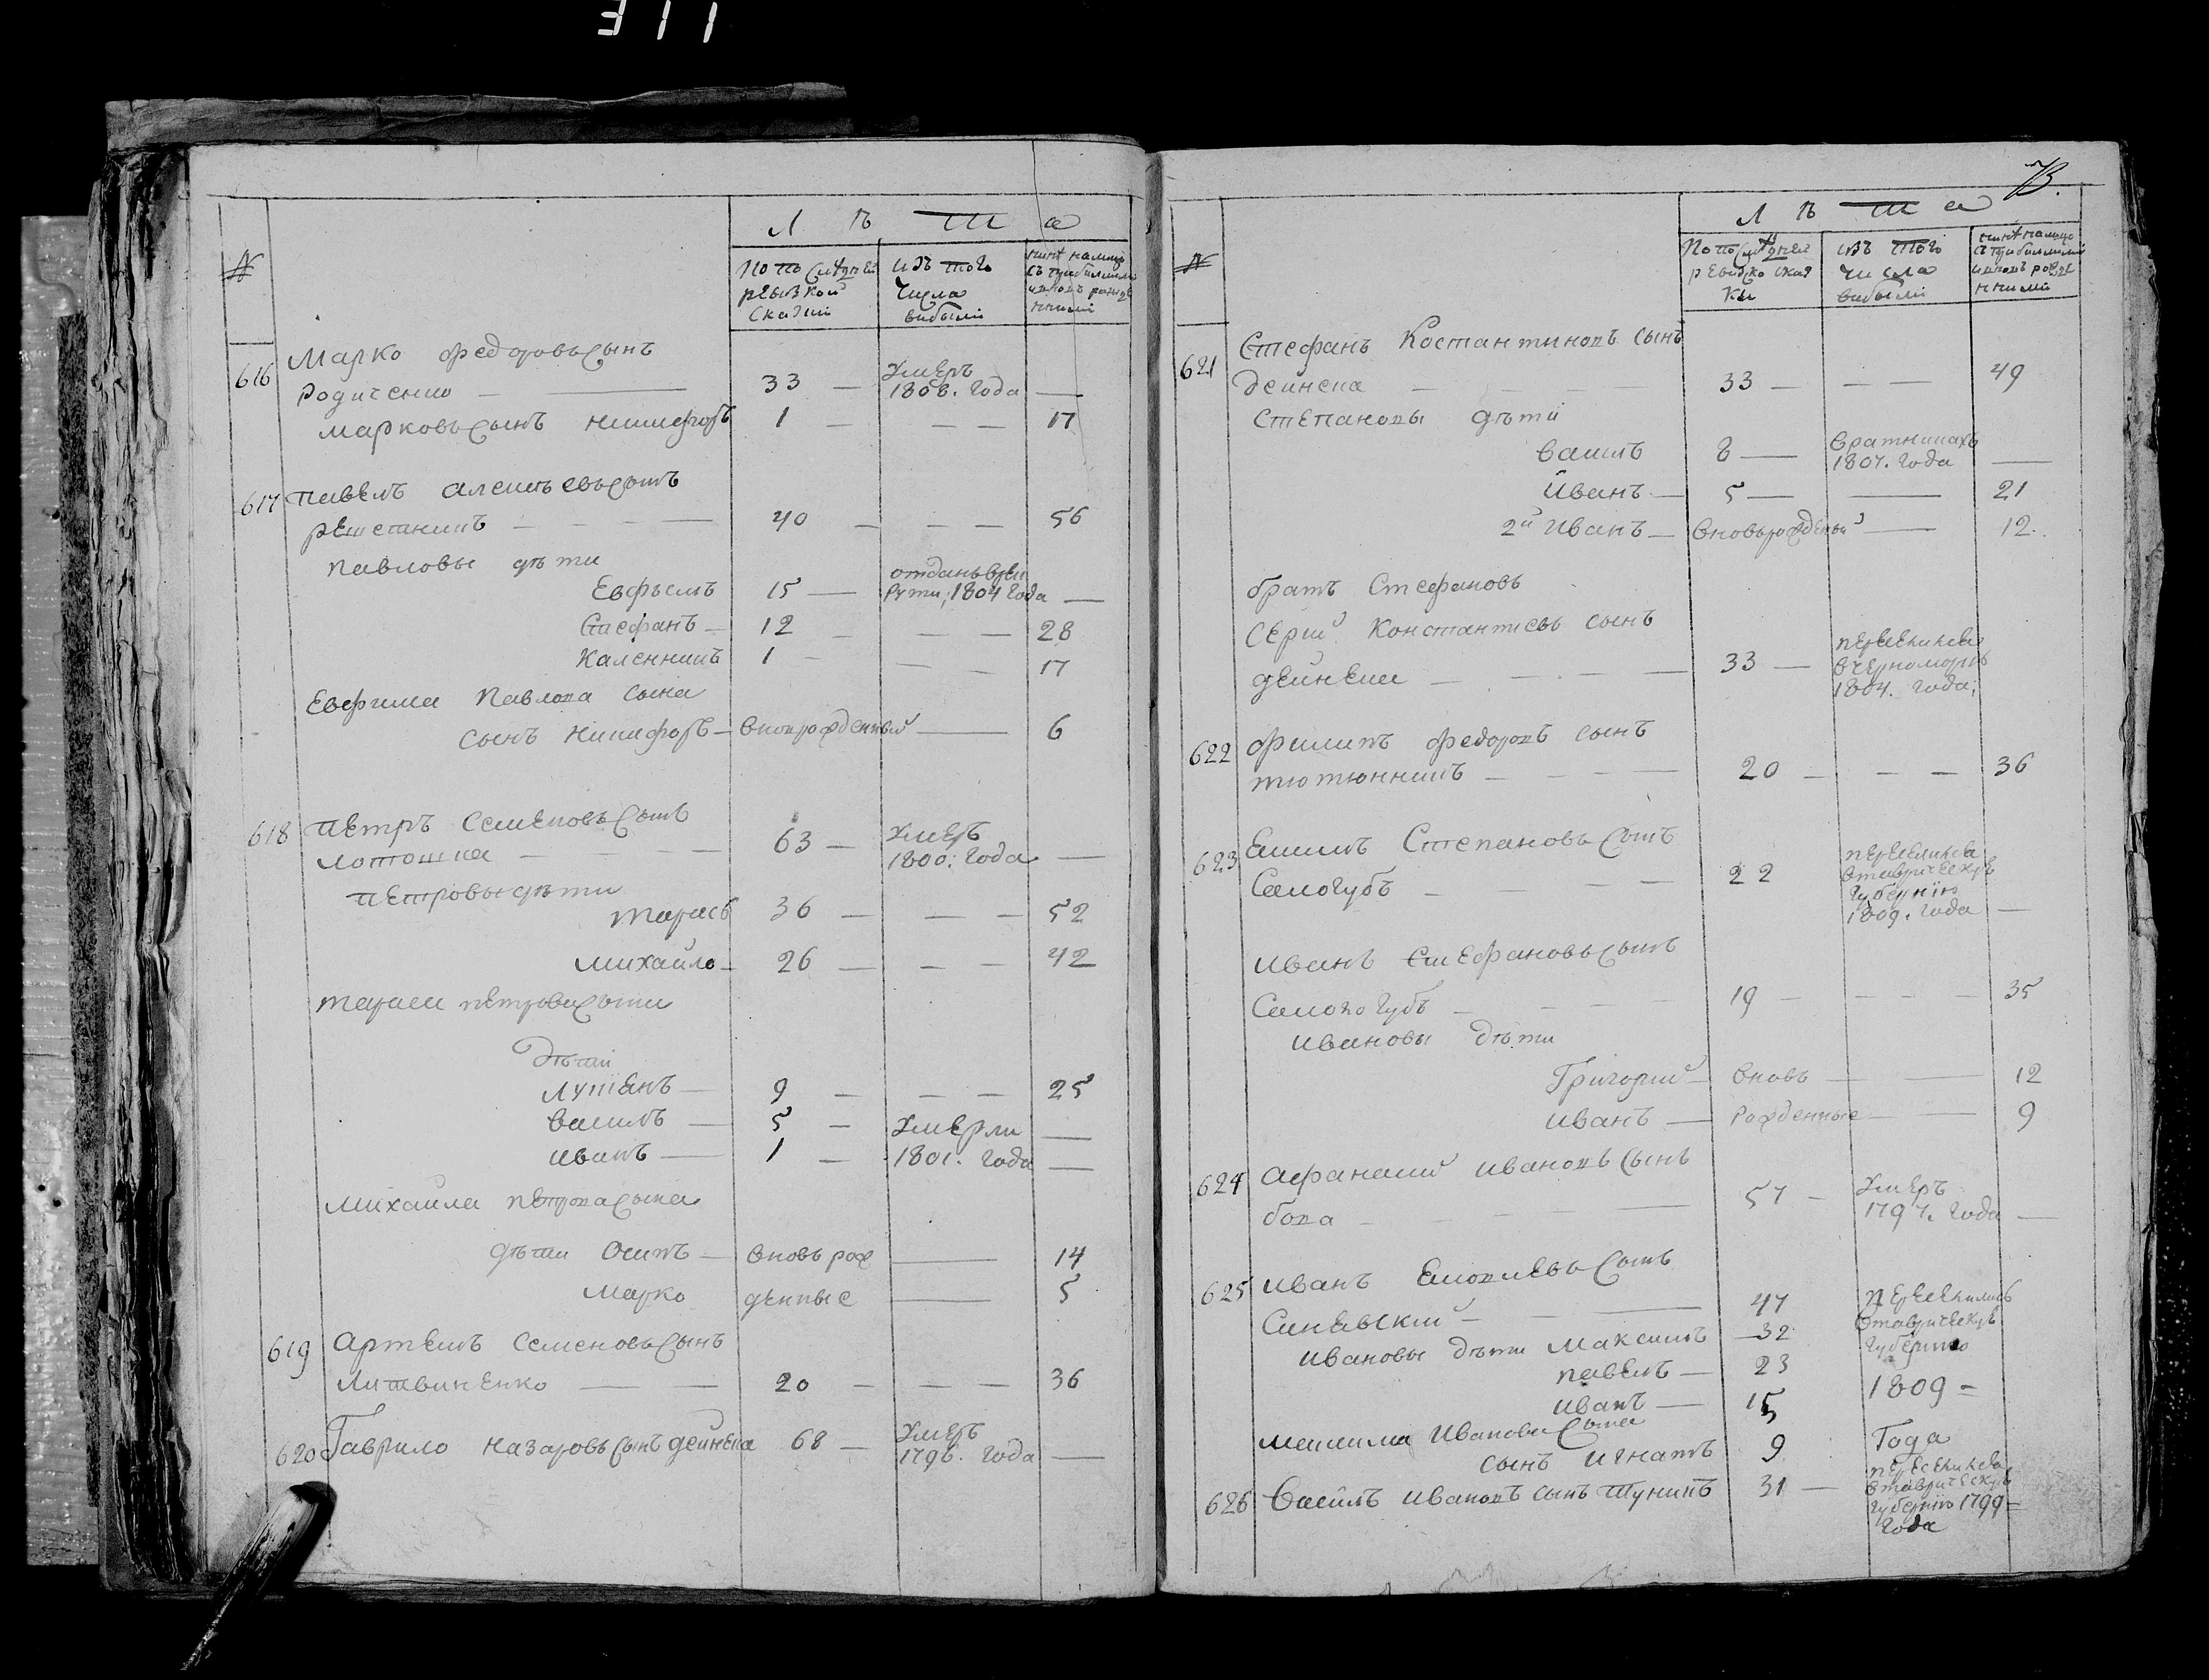 311
Л ѣ та
№
По последней ревизкой сказки
изъ того числа выбыли
ныне на лицо съ прибылыми и вновь рожденными
616 Марко Федоровъ сынъ
Родиченко — 33 — умеръ 1808. года —
Марковъ сынъ Никифоръ 1 — — — 17
617 Павелъ Алексѣевъ сынъ
Решетникъ — 40 — — — 56
Павловы дѣти
Евфимъ 15 — отданъ в рекруты, 1804 года —
Стефанъ — 12 — — — 28
Каленникъ 1 — — — 17
Евфима Павлова сына
сынъ Никифоръ — вновьрожденный — 6
618 Петръ Семеновъ сынъ
Лотошка — 63 — умеръ 1800. года —
Петровы дѣти
Тарасъ 36 — — — 52
Михайло — 26 — — — 42
Тараса Петрова сына
Дѣти
Лукянъ — 9 — — — 25
Василъ — 5 — умерли —
Иванъ — 1 — 1801. года —
Михаила Петрова сына
дѣти Осипъ — вновь рож — 14
Марко денные — 5
619 Артемъ Семеновъ сынъ
Литвиненко — — 20 — — — 36
620 Гаврило Назаровъ сынъ Дейнека 68 — умеръ 1796. года —
73.
Л ѣ т а
№
По последней ревизко сказки
изъ того числа выбыли
ныне на лицо съ прибылыми и вновь рожденными
621 Стефанъ Костантиновъ сынъ
Дейнека — 33 — — — 49
Степановы дѣти
Василъ 8 — в ратникахъ 1807. года —
Иванъ — 5 — — 21
2й Иванъ — вновьрожденый — 12.
братъ Стефановъ
Сергий Константиевъ сынъ
Дейнека — 33 — переселился в черноморию 1804. года;
622 Филипъ Федоровъ сынъ
Тютюнникъ — 20 — — — 36
623 Екимъ Степановъ сынъ
Самогубъ — 22 переселился в таврическую губернию 1809. года —
Иванъ Стефановъ сынъ
Самогубъ — 19 — — — 35
Ивановы дѣти
Григорий — вновь — — 12
Иванъ — рожденные — — 9
624 Афанасий Ивановъ сынъ
бова — 57 — умеръ 1797. года —
625 Иванъ сынъ
Синевский — 47 переселились
Ивановы дѣти Максимъ — 32 в таврическую губернию
Павелъ — 23
Иванъ — 15 1809 =
Максима Иванова сына
сынъ Игнатъ 9 Года
626 Василъ Ивановъ сынъ Туникъ 31 — переселился в таврическую губернию 1799 = года